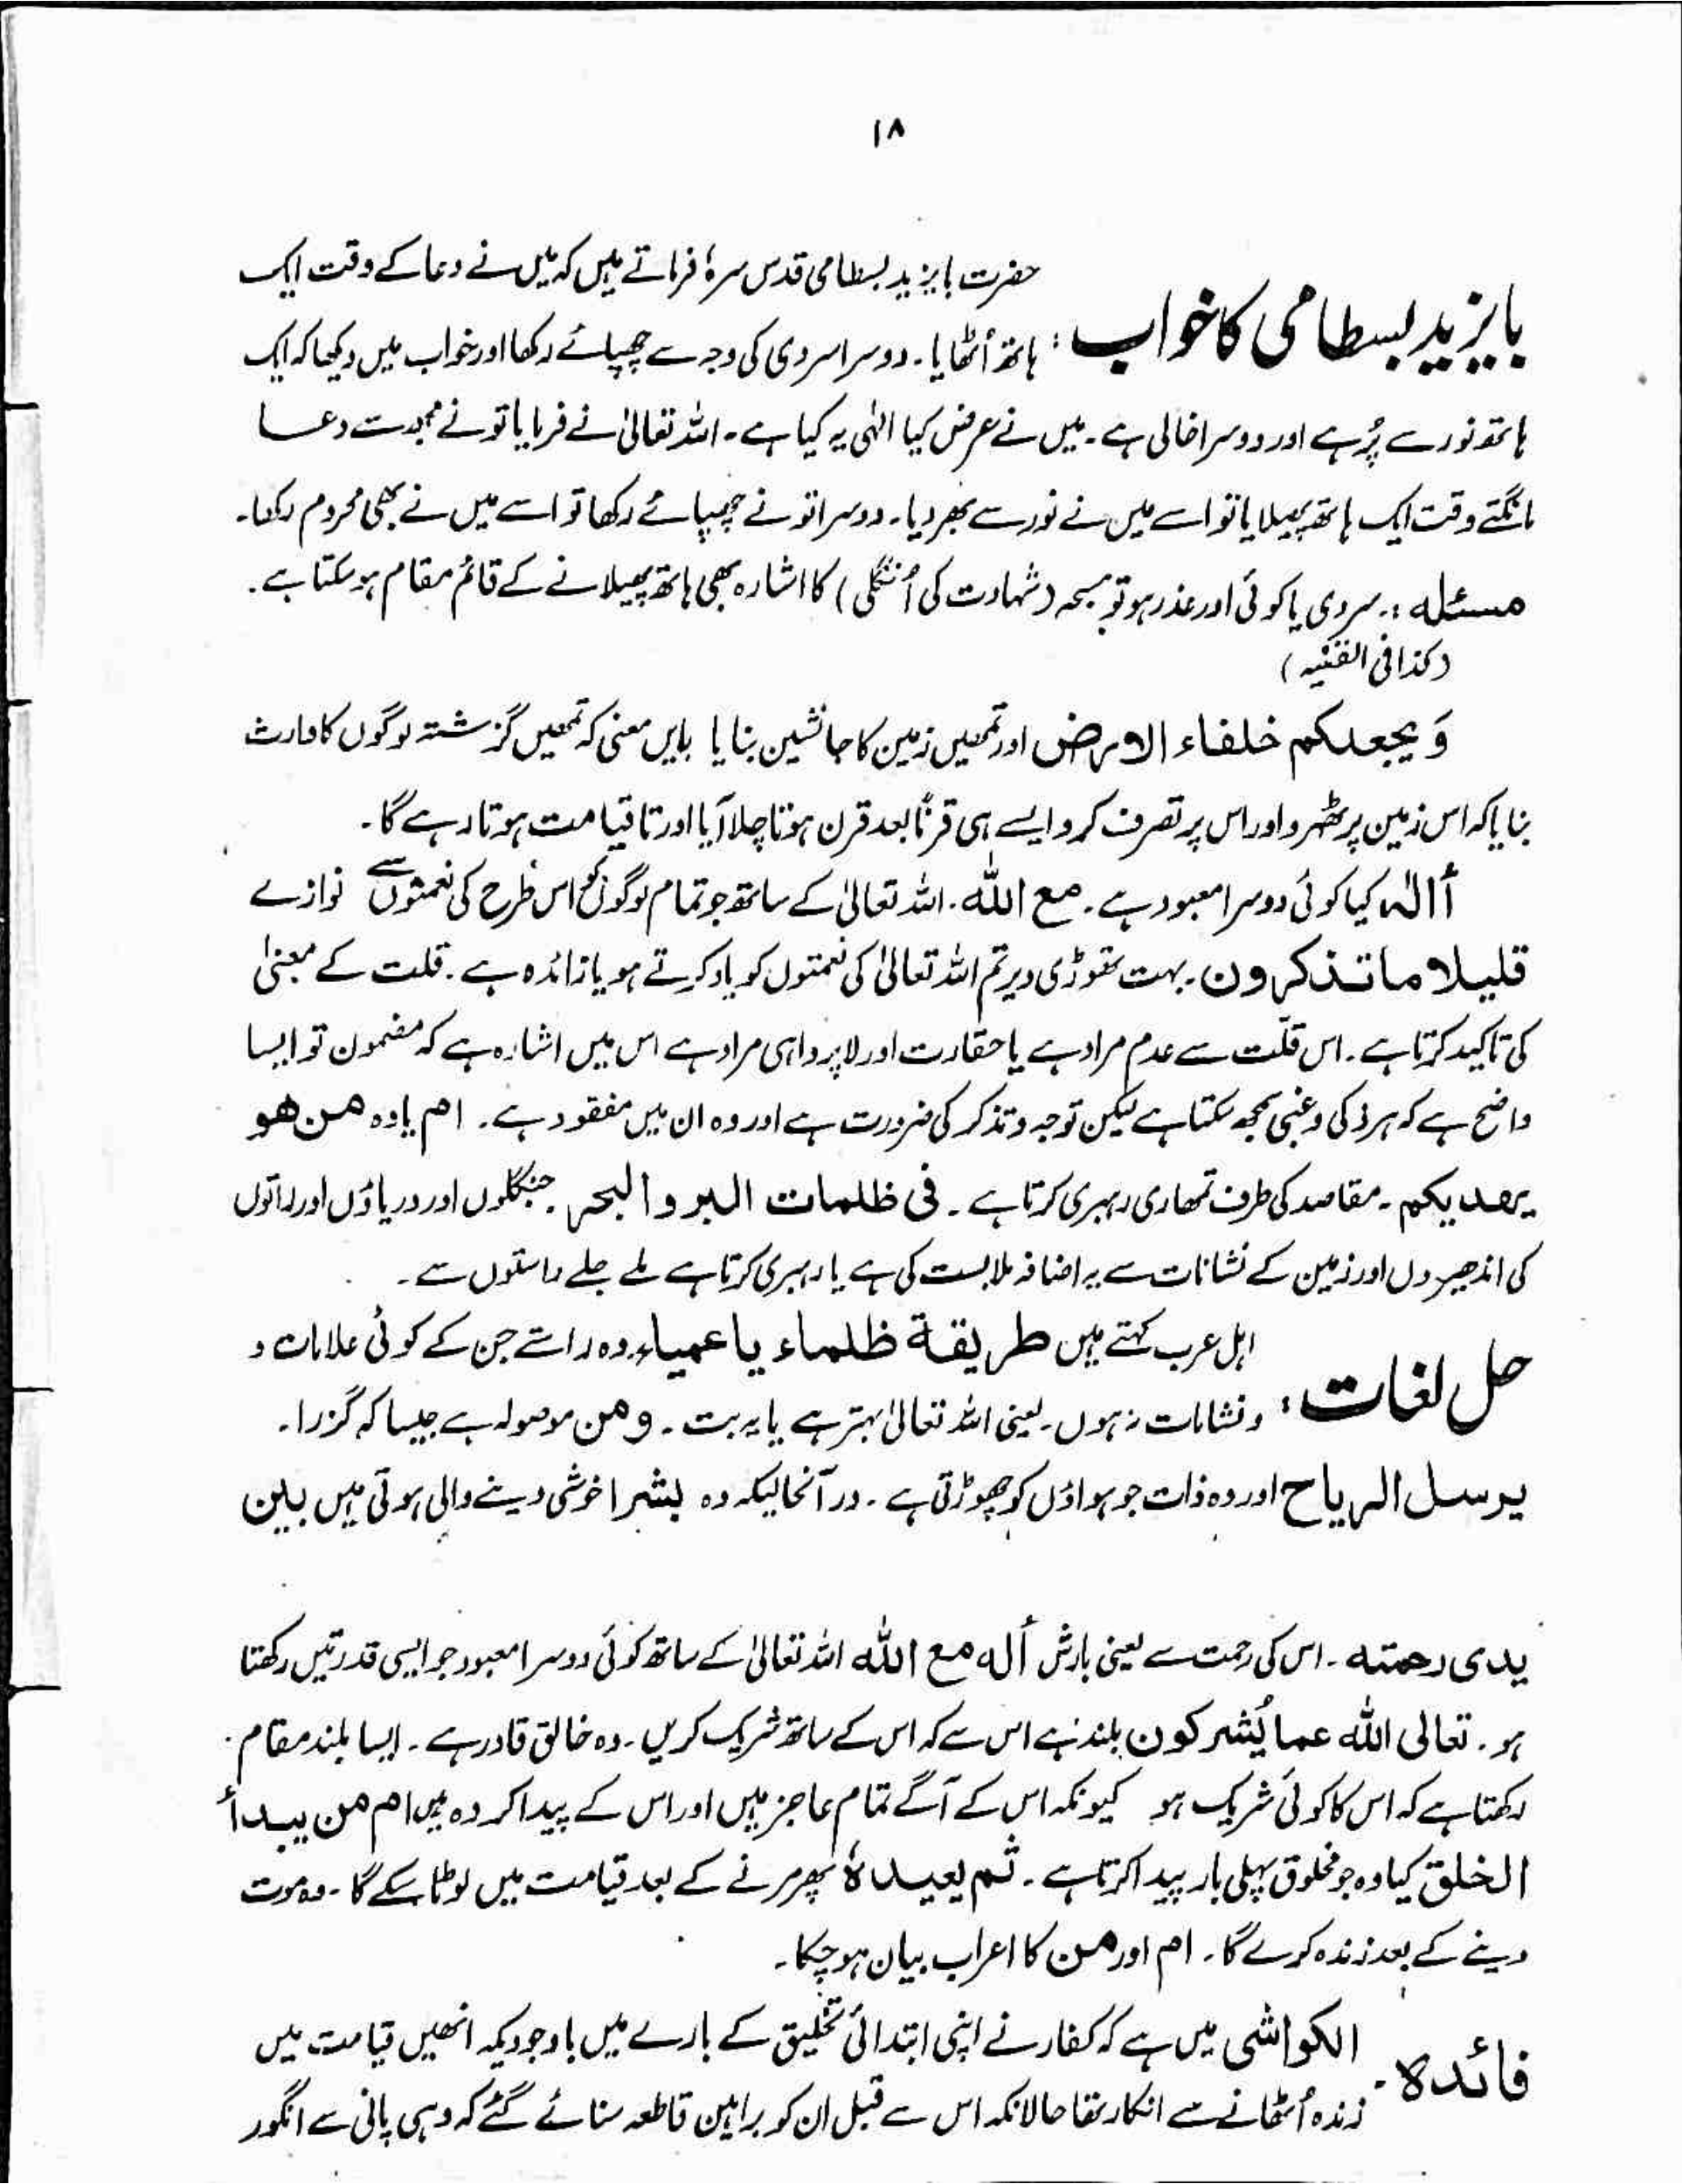 ۱۸
حضرت بایزید بسطامی قدس سرہٗ فرماتے ہیں کہ میں نے دعا کے وقت ایک
بایزید بسطامی کا خواب : ہاتھ اُٹھایا۔ دوسرا سردی کی وجہ سے چھپائے رکھا اور خواب میں دیکھا کہ ایک
ہاتھ نور سے پُر ہے اور دوسرا خالی ہے۔ میں نے عرض کیا الٰہی یہ کیا ہے۔ اللہ تعالیٰ نے فرمایا تو نے مجھ سے دعا
مانگتے وقت ایک ہاتھ پھیلایا تو اسے میں نے نور سے بھر دیا۔ دوسرا تو نے چھپائے رکھا تو اسے میں نے بھی محروم رکھا۔
مسئلہ :۔ سردی یا کوئی اور عذر ہو تو مسبحہ (شہادت کی اُنگلی) کا اشارہ بھی ہاتھ پھیلانے کے قائم مقام ہو سکتا ہے۔
(کذا فی القنیہ)
وَ یجعلکم خلفاء الارض اور تمھیں زمین کا جانشین بنایا بایں معنی کہ تمھیں گزشتہ لوگوں کا وارث
بنایا کہ اس زمین پر ٹھہرو اور اس پر تصرف کرو ایسے ہی قرناً بعد قرن ہوتا چلا آیا اور تا قیامت ہوتا رہے گا۔
أالٰہ کیا کوئی دوسرا معبود ہے۔ مع اللہ۔ اللہ تعالیٰ کے ساتھ جو تمام لوگوں کو اس طرح کی نعمتوں سے نوازے
قلیلا ما تذکرون۔ بہت تھوڑی دیر تم اللہ تعالیٰ کی نعمتوں کو یاد کرتے ہو یا زائدہ ہے۔ قلت کے معنیٰ
کی تاکید کرتا ہے۔ اس قلّت سے عدم مراد ہے یا حقارت اور لاپرواہی مراد ہے اس میں اشارہ ہے کہ مضمون تو ایسا
واضح ہے کہ ہر ذکی و غبی سمجھ سکتا ہے لیکن توجہ و تذکر کی ضرورت ہے اور وہ ان میں مفقود ہے۔ ام یا وہ من ھو
یھدیکم۔ مقاصد کی طرف تمھاری رہبری کرتا ہے۔ فی ظلمات البر و البحر۔ جنگلوں اور دریاؤں اور راتوں
کی اندھیروں اور زمین کے نشانات سے یہ اضافہ ملابست کی ہے یا رہبری کرتا ہے ملے جلے راستوں سے۔
اہل عرب کہتے ہیں طریقة ظلماء یا عمیاء وہ راستے جن کے کوئی علامات و
حل لغات : و نشانات نہ ہوں۔ یعنی اللہ تعالیٰ بہتر ہے یا یہ بت۔ و من موصولہ ہے جیسا کہ گزرا۔
یرسل الریاح اور وہ ذات جو ہواؤں کو چھوڑتی ہے۔ درآنحالیکہ وہ بشرا خوشی دینے والی ہوتی ہیں بین
یدی رحمتہ۔ اس کی رحمت سے یعنی بارش أالہ مع اللہ اللہ تعالیٰ کے ساتھ کوئی دوسرا معبود جو ایسی قدرتیں رکھتا
ہو۔ تعالی اللہ عما یُشرکون بلند ہے اس سے کہ اس کے ساتھ شریک کریں۔ وہ خالق قادر ہے۔ ایسا بلند مقام
رکھتا ہے کہ اس کا کوئی شریک ہو کیونکہ اس کے آگے تمام عاجز ہیں اور اس کے پیدا کردہ ہیں ام من یبدأ
الخلق کیا وہ جو مخلوق پہلی بار پیدا کرتا ہے۔ ثم یعیدہٗ پھر مرنے کے بعد قیامت میں لوٹا سکے گا۔ وہ موت
دینے کے بعد زندہ کرے گا۔ ام اور من کا اعراب بیان ہو چکا۔
الکواشی میں ہے کہ کفار نے اپنی ابتدائی تخلیق کے بارے میں باوجودیکہ انھیں قیامت میں
فائدہ۔ زندہ اُٹھانے سے انکار تھا حالانکہ اس سے قبل ان کو براہین قاطعہ سنائے گئے کہ وہی پانی سے انگور